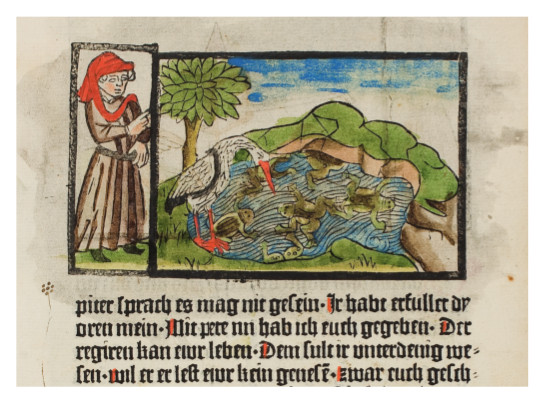 piter sprach es mag nit gesein· Ir habt erfullet dy
oren mein· Mit pete nu hab ich euch gegeben· Der
regiren kan ewr leben· Dem sult ir vnterdenig we⸗
sen· wil er er lest ewr kein genesē· zwar euch gesch⸗